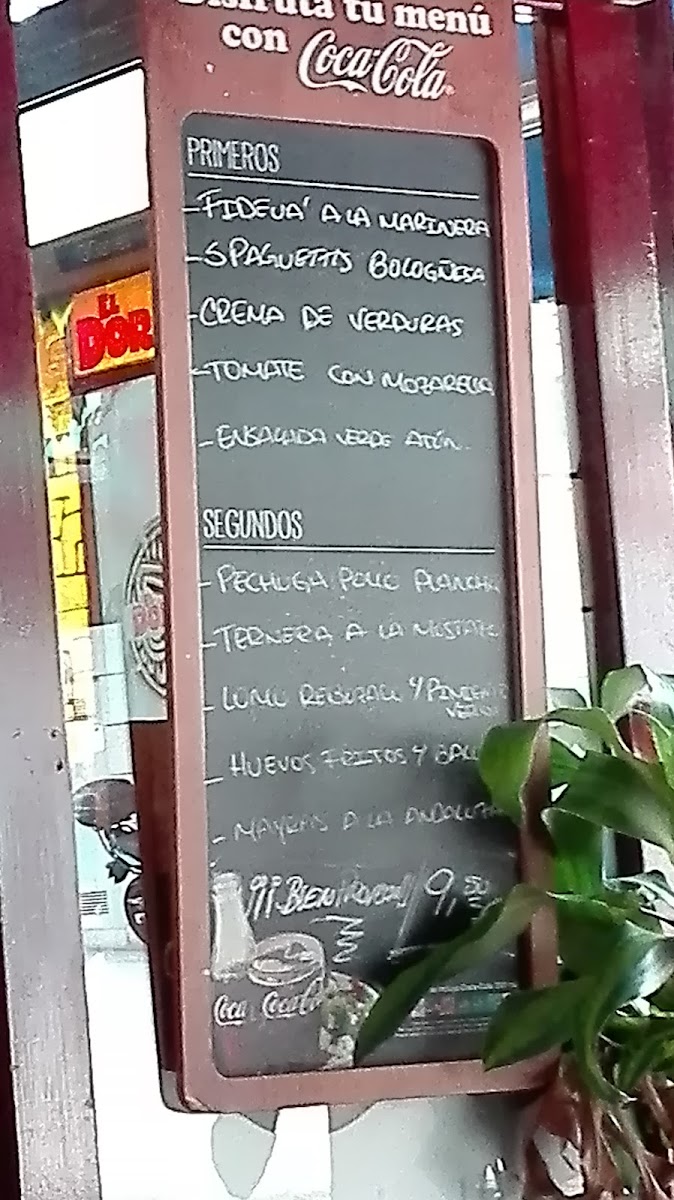 Disfruta tu menú
con Coca-Cola
EL
DOR
PRIMEROS
-FIDEUA' A LA MARINERA
-SPAGUETTIS BOLOGÑESA
-CREMA DE VERDURAS
-TOMATE CON MOZARELLA
-ENSALADA VERDE ATÚN.
SEGUNDOS
-PECHUGA POLLO PLANCHA
-TERNERA A LA
-LOMO REBOZADO Y PIMIENTO
VERDE
-HUEVOS FRITOS Y
- A LA ANDALUZA
¡¡¡BIENVENIDOS!! 9,50
Coca Coca-Cola